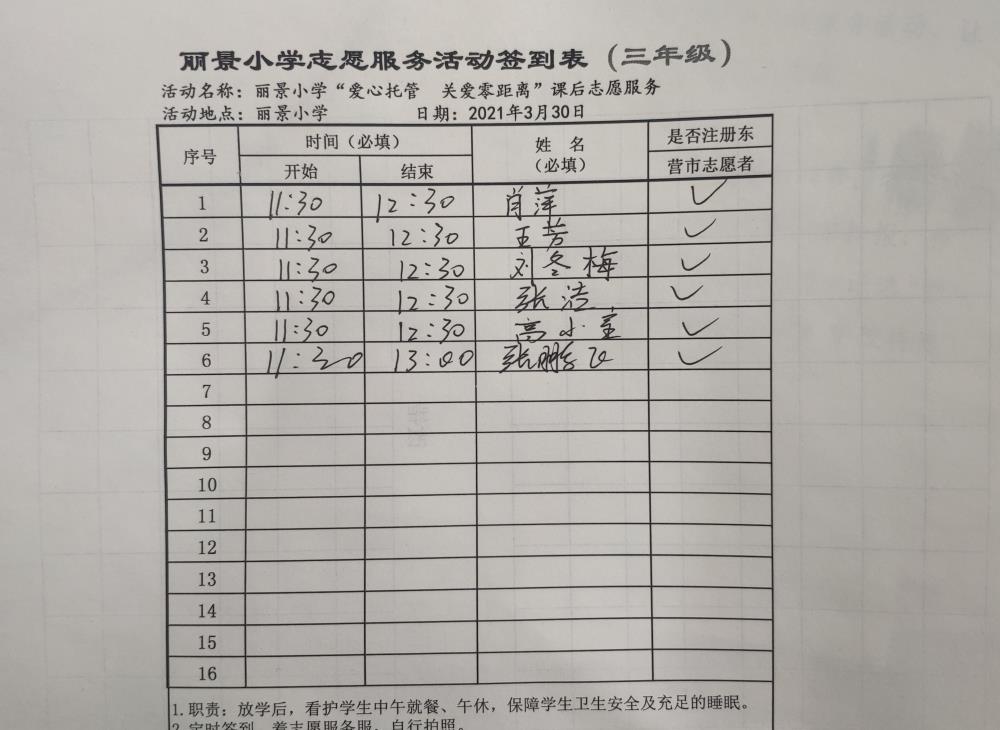 丽景小学志愿服务活动签到表（三年级）
活动名称：丽景小学“爱心托管 关爱零距离”课后志愿服务
活动地点：丽景小学 日期：2021年3月30日
序号 时间（必填） 姓名（必填） 是否注册东营市志愿者
开始 结束
1 11:30 12:30 肖萍 ✓
2 11:30 12:30 王芳 ✓
3 11:30 12:30 刘冬梅 ✓
4 11:30 12:30 张洁 ✓
5 11:30 12:30 高小 ✓
6 11:30 13:00 张鹏飞 ✓
7
8
9
10
11
12
13
14
15
16
1.职责：放学后，看护学生中午就餐、午休，保障学生卫生安全及充足的睡眠。
2.定时签到，着志愿服务服，自行拍照。